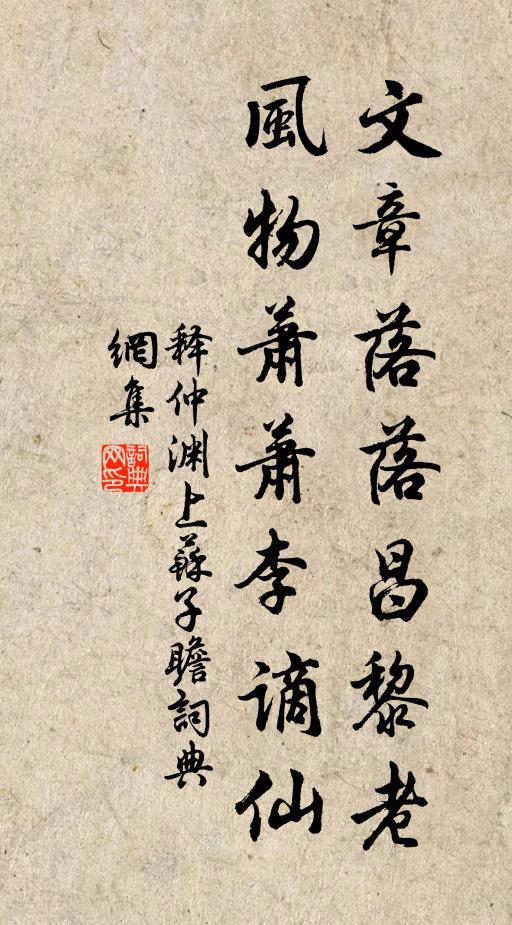 文章落落昌黎老
風物蕭蕭李謫仙
释仲渊上蘇子瞻詞典
網集
詞典
网印